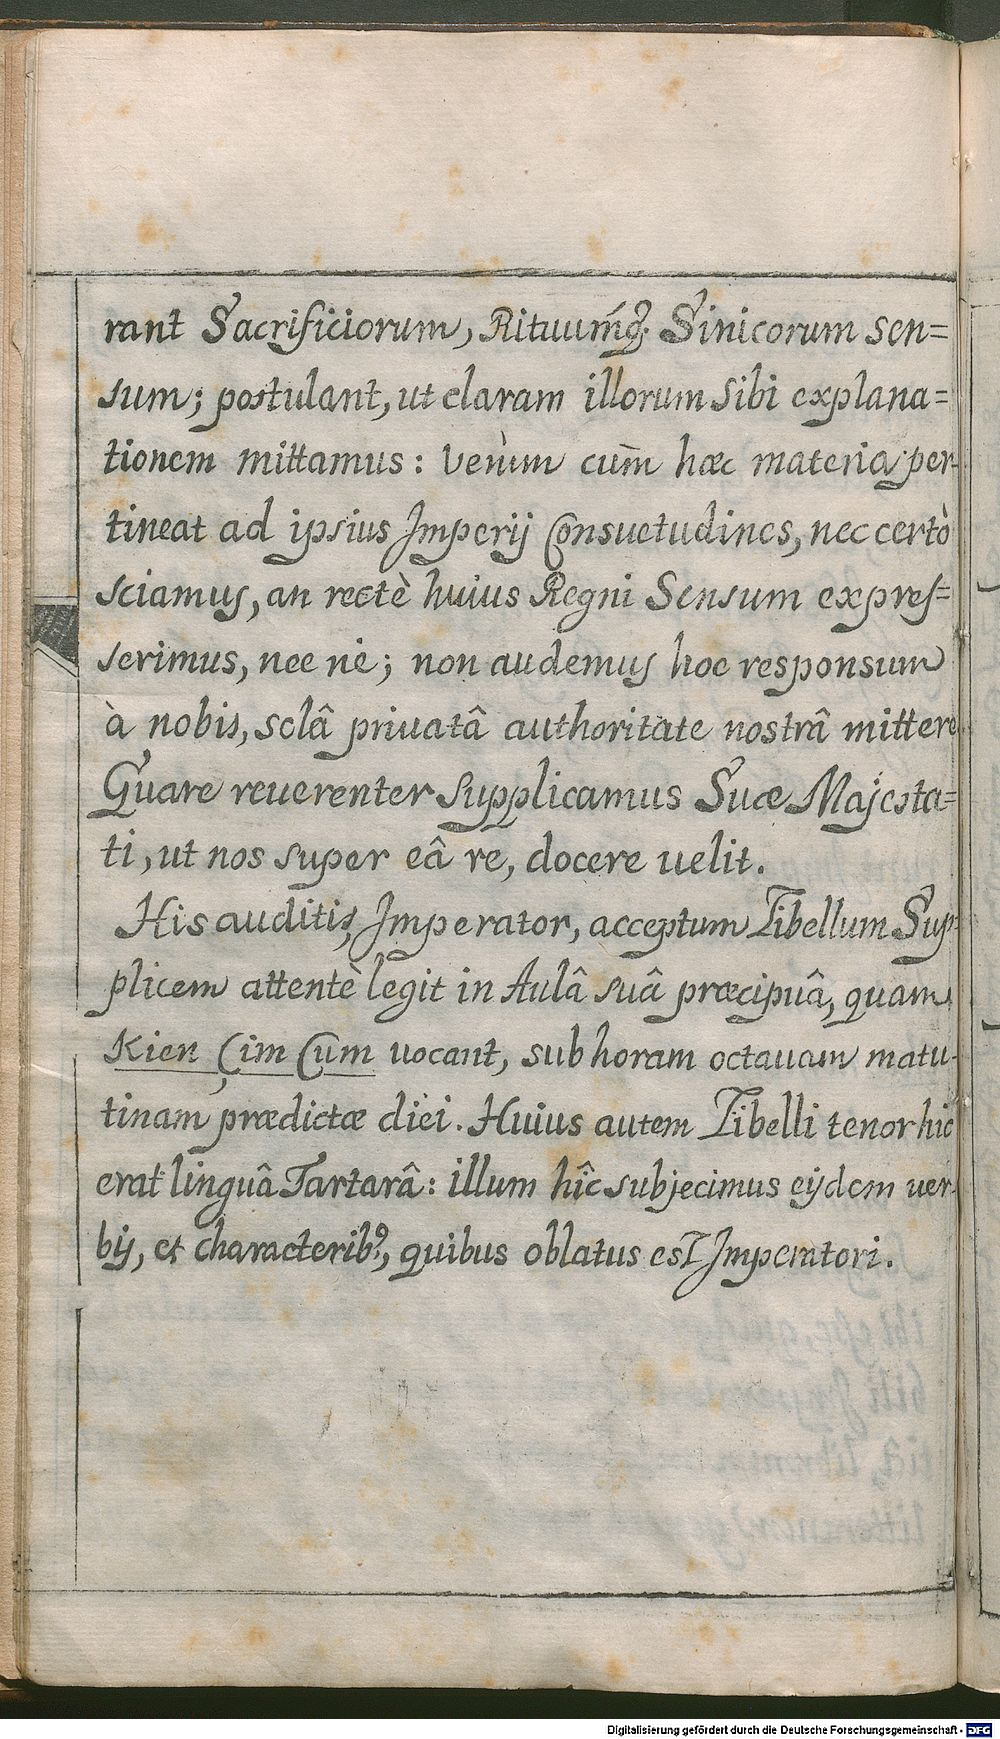 rant Sacrificiorum, Rituumq́; Sinicorum sen=
sum; postulant, ut claram illorum Sibi explana=
tionem mittamus: verùm cùm hæc materia per-
tineat ad ipsius Imperij Consuetudines, nec certò
sciamus, an rectè huius Regni Sensum expres=
serimus, nec nè; non audemus hoc responsum
à nobis, solâ priuatâ authoritate nostrâ mittere
Quare reuerenter supplicamus Suæ Majesta=
ti, ut nos super eâ re, docere uelit.
His auditis, Imperator, acceptum Libellum Sup-
plicem attentè legit in Aulâ suâ præcipuâ, quam
Kien Çim Cum uocant, sub horam octauam matu-
tinam prædictæ diei. Huius autem Libelli tenor hic
erat linguâ Tartarâ: illum hîc subjecimus eijdem ver-
bij, et characterib⁹, quibus oblatus est Imperatori.
Digitalisierung gefördert durch die Deutsche Forschungsgemeinschaft - DFG